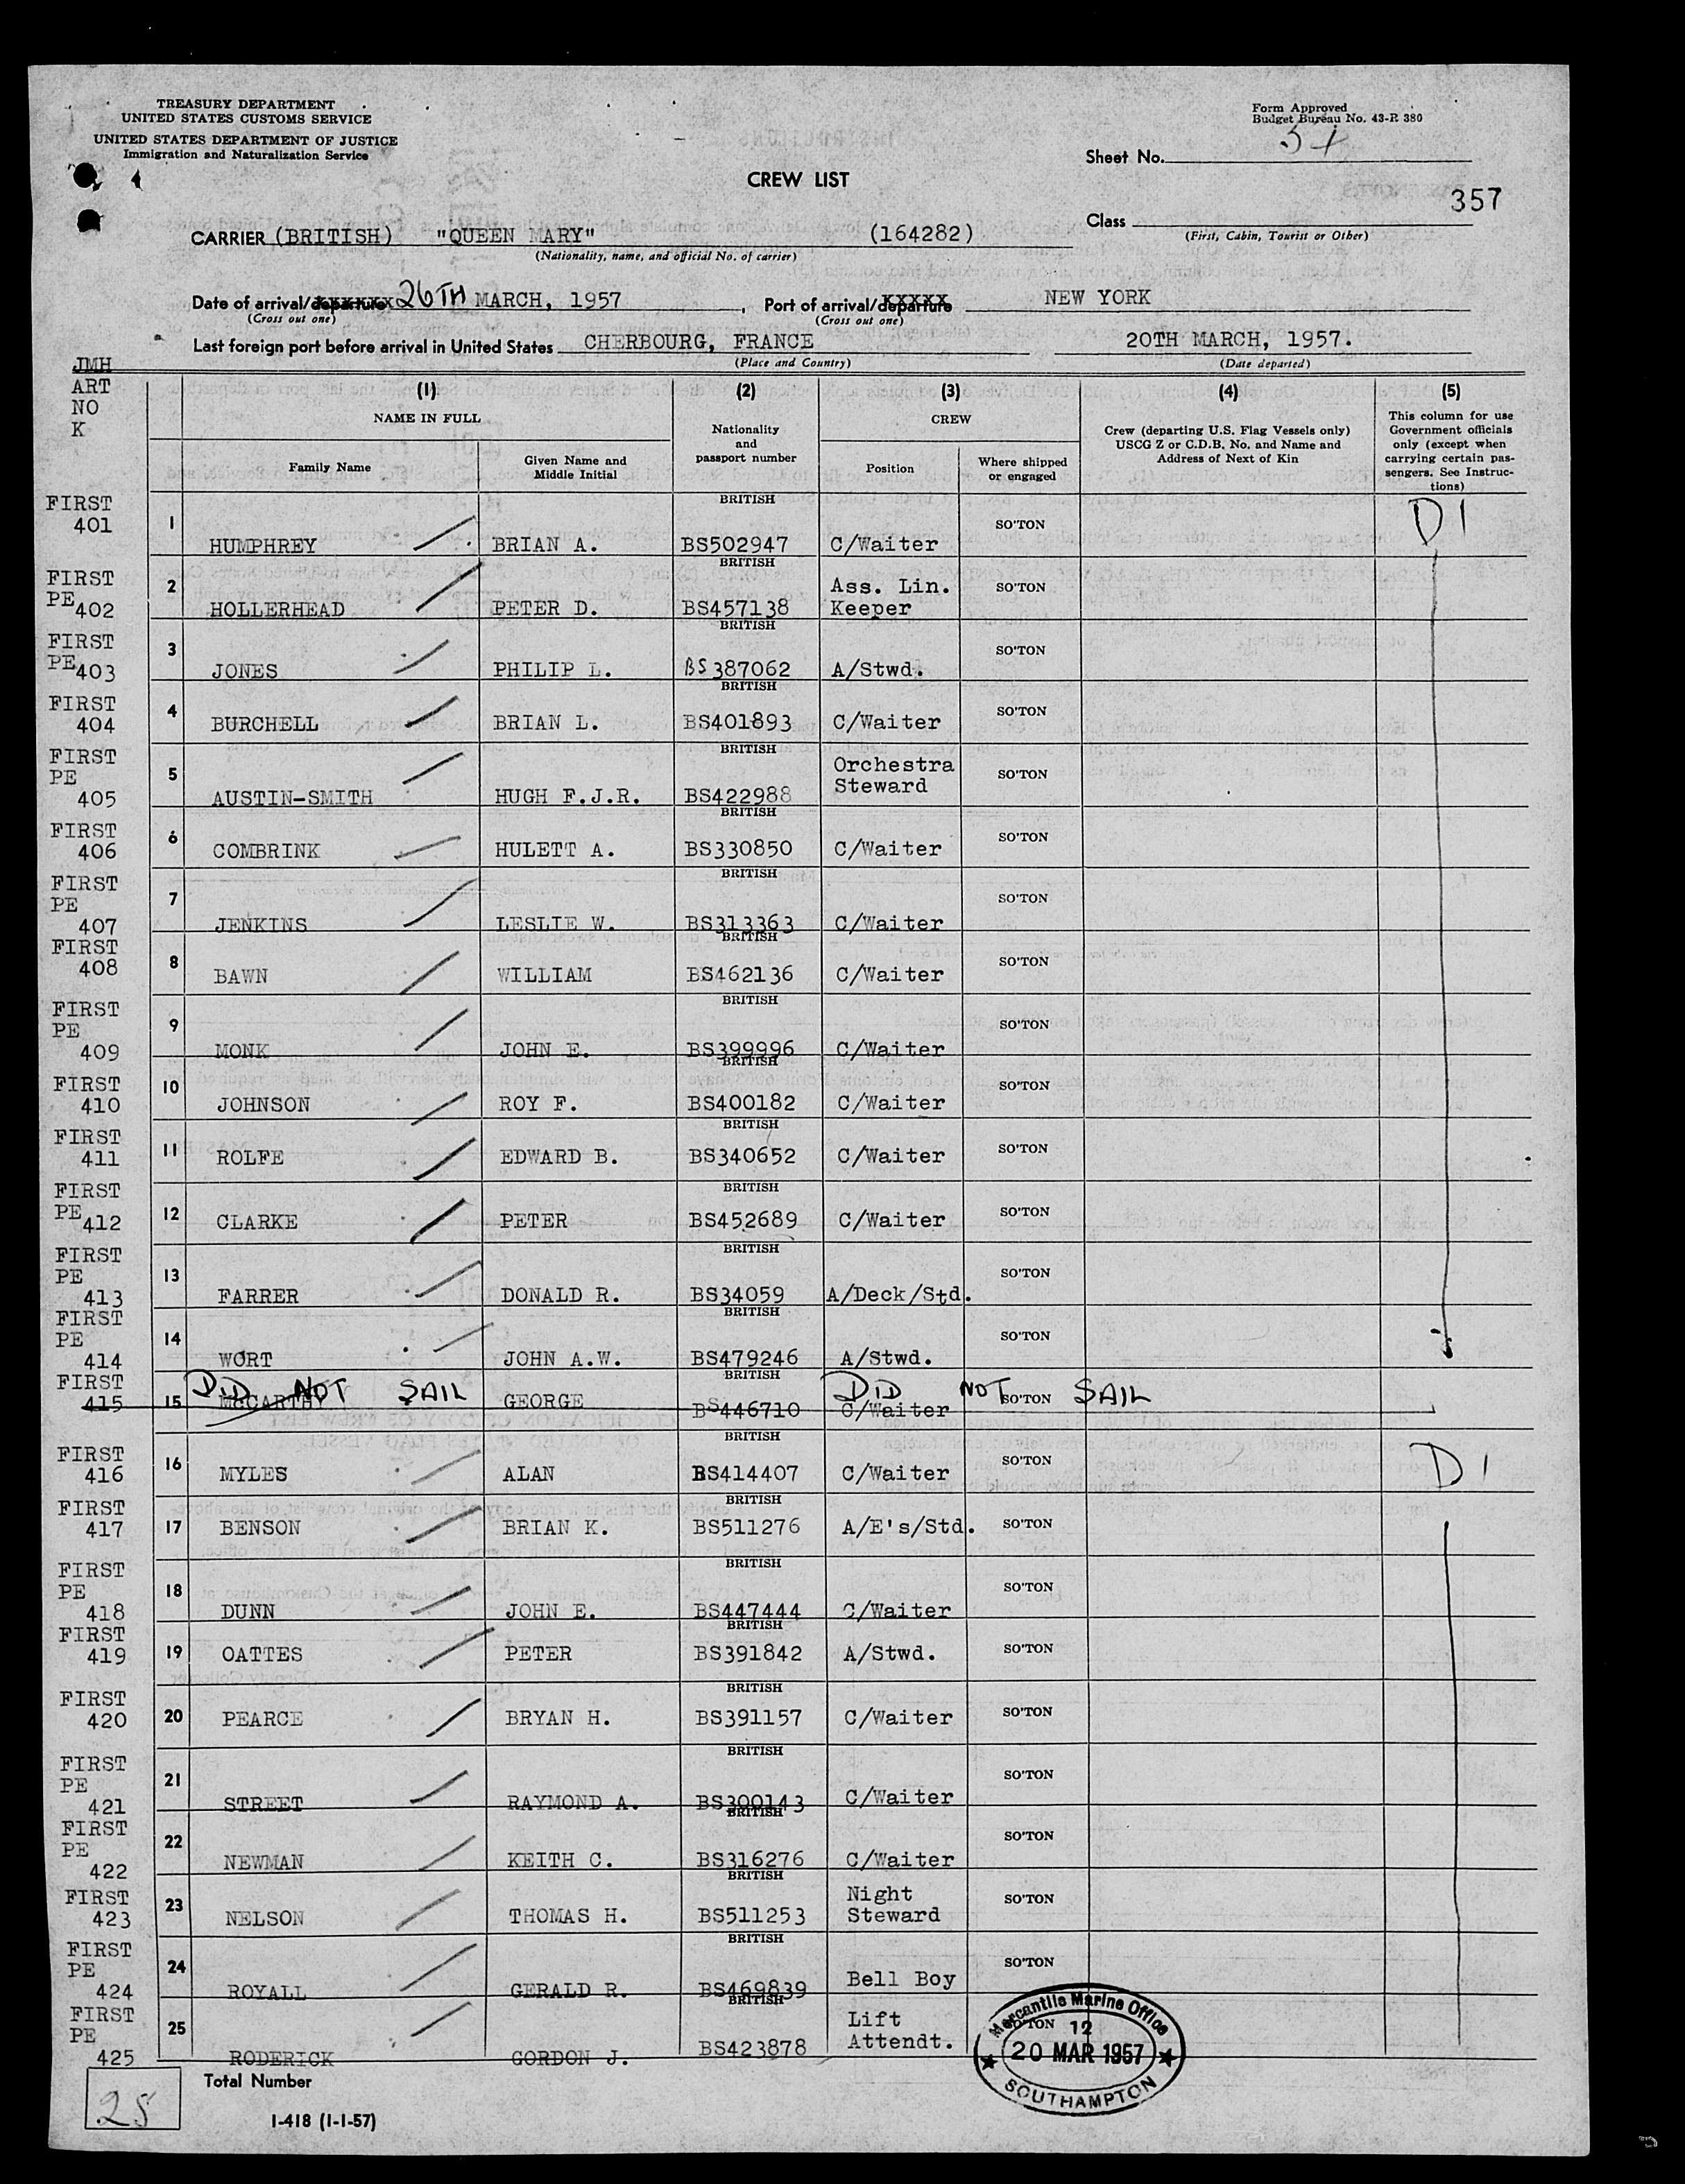 TREASURY DEPARTMENT
UNITED STATES CUSTOMS SERVICE
UNITED STATES DEPARTMENT OF JUSTICE
Immigration and Naturalization Service
Form Approved
Budget Bureau No. 43-R 380
Sheet No.
CREW LIST
357
Class
(First, Cabin, Tourist or Other)
CARRIER (BRITISH) "QUEEN MARY" (164282)
(Nationality, name, and official No. of carrier)
Date of arrival/departure 26TH MARCH, 1957, Port of arrival/departure NEW YORK
(Cross out one) (Cross out one)
Last foreign port before arrival in United States CHERBOURG, FRANCE 20TH MARCH, 1957.
(Place and Country) (Date departed)
JMH
ART
NO
K
(1) (2) (3) (4) (5)
NAME IN FULL
Family Name
Given Name and
Middle Initial
Nationality
and
passport number
CREW
Position
Where shipped
or engaged
Crew (departing U.S. Flag Vessels only)
USCG Z or C.D.B. No. and Name and
Address of Next of Kin
This column for use
Government officials
only (except when
carrying certain pas-
sengers. See Instruc-
tions)
FIRST 401 1 HUMPHREY BRIAN A. BRITISH BS502947 C/Waiter SO'TON D1
FIRST PE 402 2 HOLLERHEAD PETER D. BRITISH BS457138 Ass. Lin. Keeper SO'TON
FIRST PE 403 3 JONES PHILIP L. BRITISH BS387062 A/Stwd. SO'TON
FIRST 404 4 BURCHELL BRIAN L. BRITISH BS401893 C/Waiter SO'TON
FIRST PE 405 5 AUSTIN-SMITH HUGH F.J.R. BRITISH BS422988 Orchestra Steward SO'TON
FIRST 406 6 COMBRINK HULETT A. BRITISH BS330850 C/Waiter SO'TON
FIRST PE 407 7 JENKINS LESLIE W. BRITISH BS313363 C/Waiter SO'TON
FIRST 408 8 BAWN WILLIAM BRITISH BS462136 C/Waiter SO'TON
FIRST PE 409 9 MONK JOHN E. BRITISH BS399996 C/Waiter SO'TON
FIRST 410 10 JOHNSON ROY F. BRITISH BS400182 C/Waiter SO'TON
FIRST 411 11 ROLFE EDWARD B. BRITISH BS340652 C/Waiter SO'TON
FIRST PE 412 12 CLARKE PETER BRITISH BS452689 C/Waiter SO'TON
FIRST PE 413 13 FARRER DONALD R. BRITISH BS34059 A/Deck/Std. SO'TON
FIRST PE 414 14 WORT JOHN A.W. BRITISH BS479246 A/Stwd. SO'TON
FIRST 415 15 McCARTHY DID NOT SAIL GEORGE BRITISH BS446710 C/Waiter SO'TON DID NOT SAIL
FIRST 416 16 MYLES ALAN BRITISH BS414407 C/Waiter SO'TON D1
FIRST 417 17 BENSON BRIAN K. BRITISH BS511276 A/E's/Std. SO'TON
FIRST PE 418 18 DUNN JOHN E. BRITISH BS447444 C/Waiter SO'TON
FIRST 419 19 OATTES PETER BRITISH BS391842 A/Stwd. SO'TON
FIRST 420 20 PEARCE BRYAN H. BRITISH BS391157 C/Waiter SO'TON
FIRST PE 421 21 STREET RAYMOND A. BRITISH BS300143 C/Waiter SO'TON
FIRST PE 422 22 NEWMAN KEITH C. BRITISH BS316276 C/Waiter SO'TON
FIRST 423 23 NELSON THOMAS H. BRITISH BS511253 Night Steward SO'TON
FIRST PE 424 24 ROYALL GERALD R. BRITISH BS469839 Bell Boy SO'TON
FIRST PE 425 25 RODERICK GORDON J. BRITISH BS423878 Lift Attendt. SO'TON
Mercantile Marine Office
12
20 MAR 1957
SOUTHAMPTON
Total Number
25
I-418 (1-1-57)